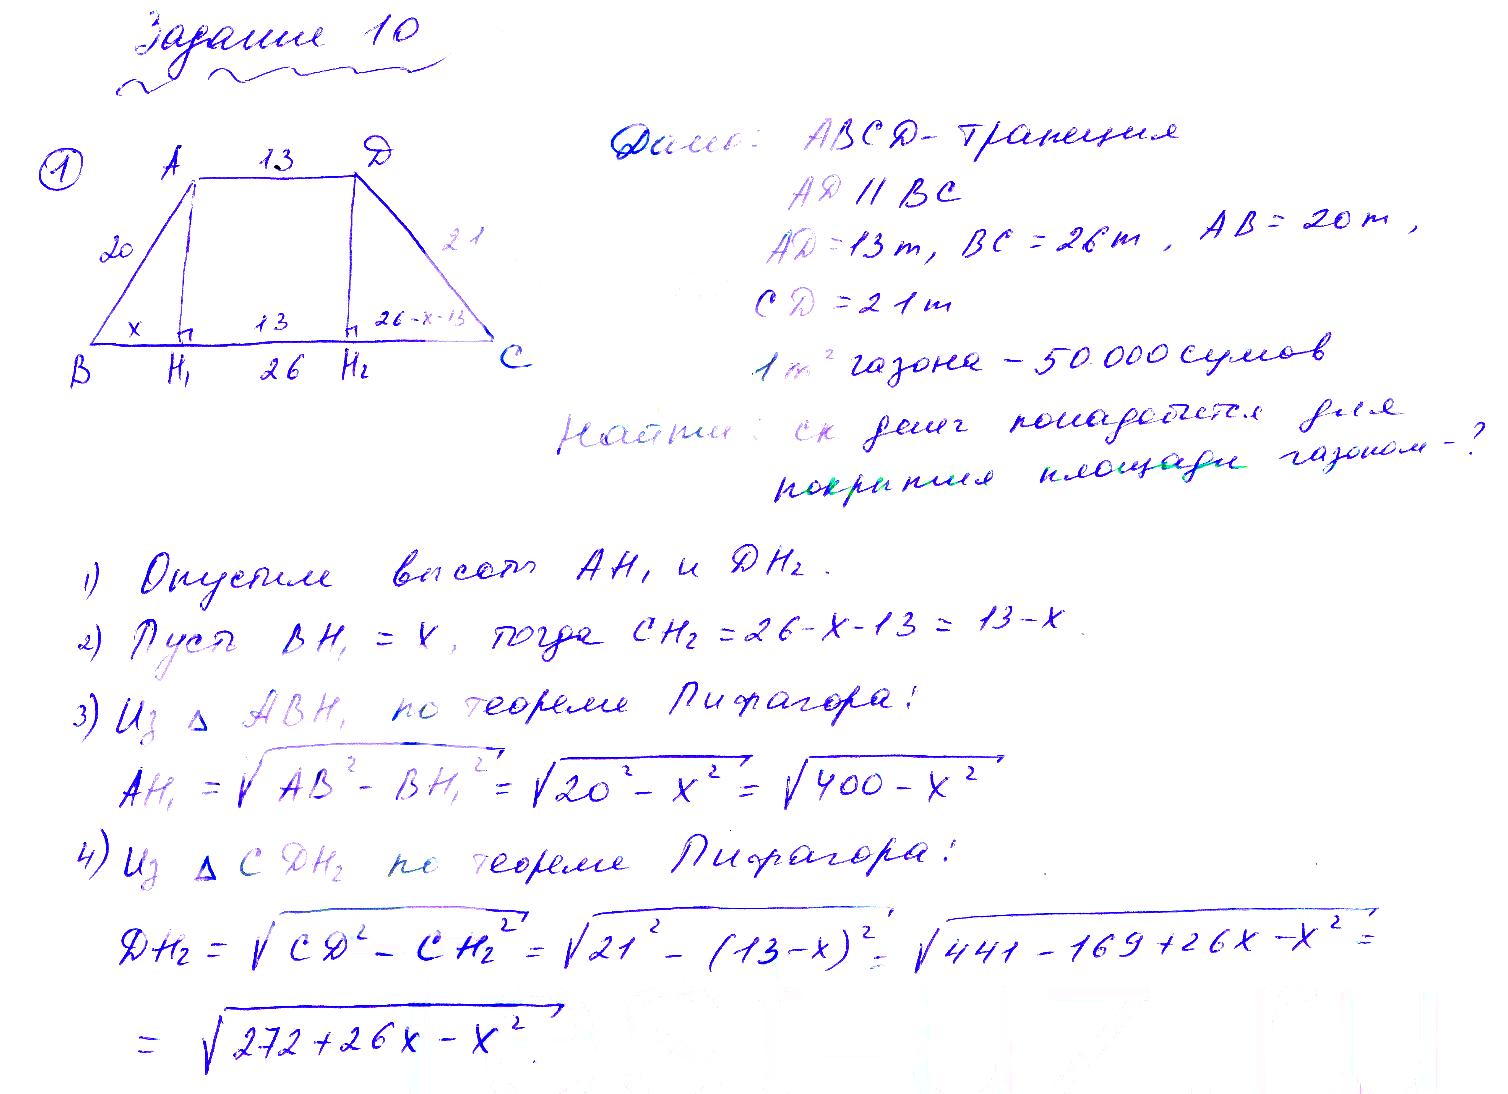 Задание 10
① A 13 D
20 21
x 13 26-x-13
B H₁ 26 H₂ C
Дано: ABCD - трапеция
AD || BC
AD = 13 m, BC = 26 m, AB = 20 m,
CD = 21 m
1 m² газона - 50.000 сумов
Найти: ск денег понадобится для
покрытия площади газоном - ?
1) Опустим высоты AH₁ и DH₂.
2) Пусть BH₁ = x, тогда CH₂ = 26-x-13 = 13-x
3) Из Δ ABH₁ по теореме Пифагора:
AH₁ = √(AB² - BH₁²) = √(20² - x²) = √(400 - x²)
4) Из Δ CDH₂ по теореме Пифагора:
DH₂ = √(CD² - CH₂²) = √(21² - (13-x)²) = √(441 - 169 + 26x - x²) =
= √(272 + 26x - x²).